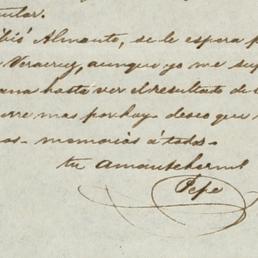 bió Almonte, se le espera p
Veracruz, aunque yo me sup
ana hasta ver el resultado de
rre mas por hoy. deseo que
os. memorias á todos.
tu amante herno
Pepe